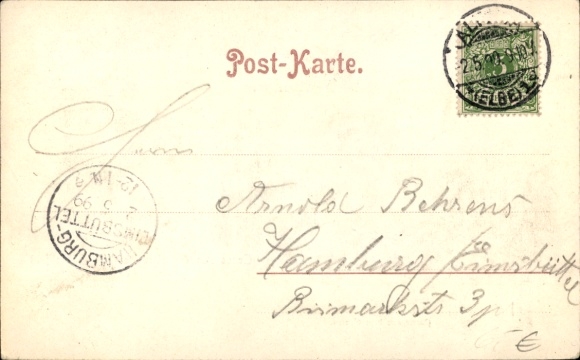 Post-Karte.
(ELBE) 1
Herrn
HAMBURG-
EIMSBÜTTEL
2 5 99
12-1 N
Arnold Behrens
Hamburg Eimsbüttel
Bismarckstr 3 p
€